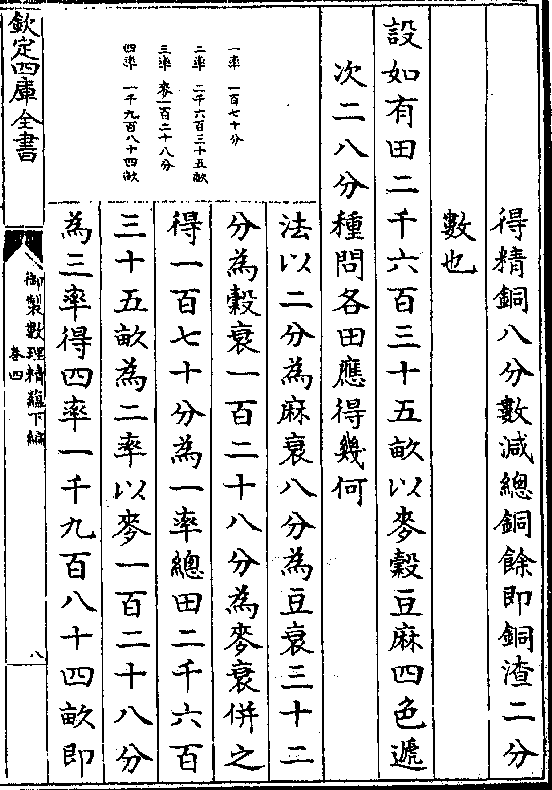 得精銅八分數減總銅餘即銅渣二分
數也
設如有田二千六百三十五畝以麥穀豆麻四色遞
次二八分種問各田應得幾何
法以二分為麻衰八分為豆衰三十二
分為穀衰一百二十八分為麥衰併之
得一百七十分為一率總田二千六百
三十五畝為二率以麥一百二十八分
為三率得四率一千九百八十四畝即
一率 一百七十分
二率 二千六百三十五畝
三率 麥一百二十八分
四率 一千九百八十四畝
欽定四庫全書
御製數理精蘊下編
卷四
八